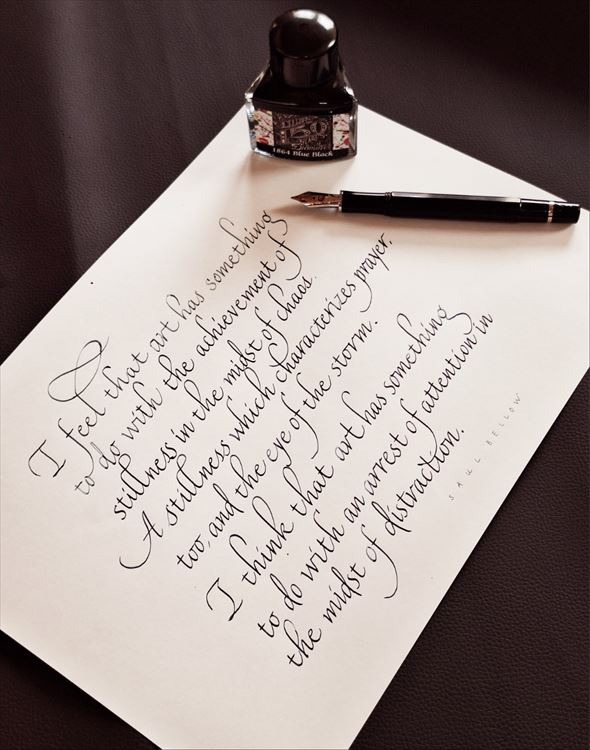 150
1864 Blue Black
I feel that art has something
to do with the achievement of
stillness in the midst of chaos.
A stillness which characterizes prayer,
too, and the eye of the storm.
I think that art has something
to do with an arrest of attention in
the midst of distraction.
SAUL BELLOW